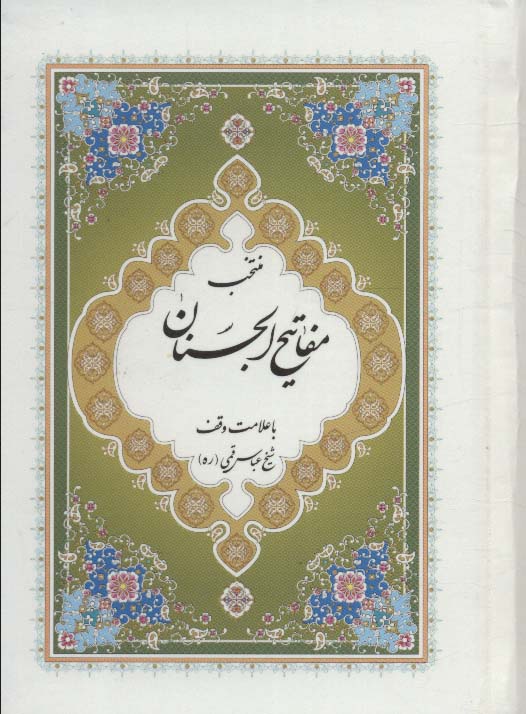 منتخب
مفاتیح الجنان
با علامت وقف
شیخ عباس قمی (ره)